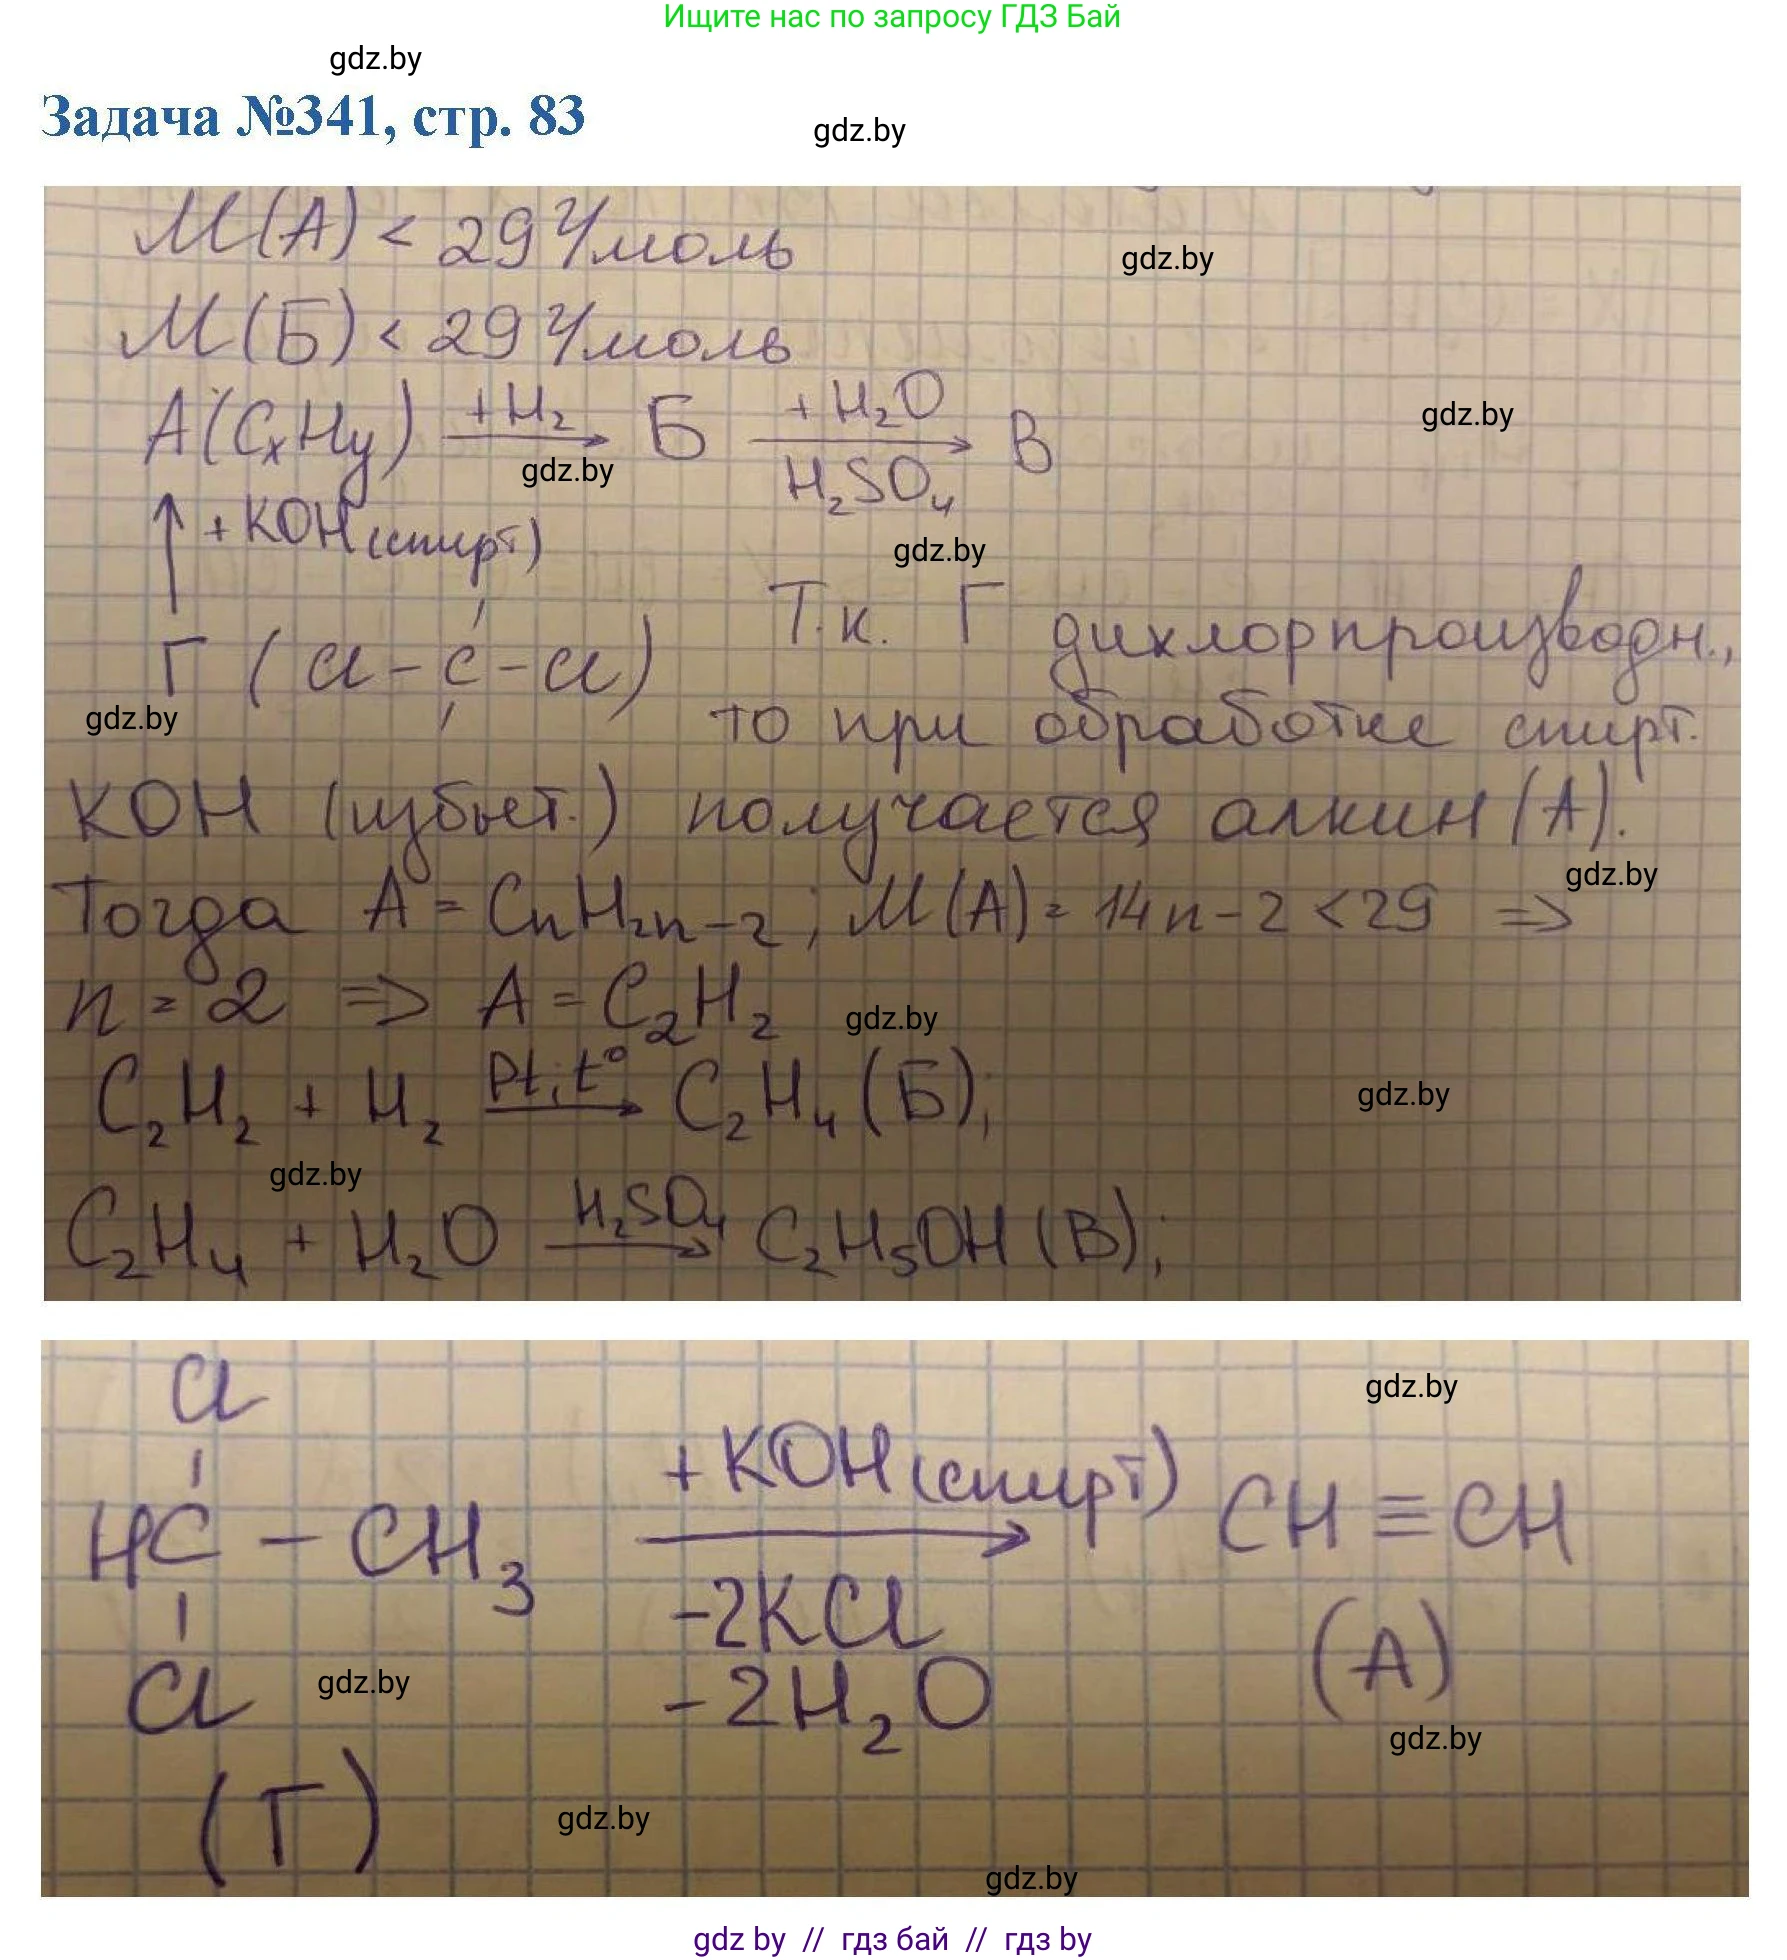 Ищите нас по запросу ГДЗ Бай
gdz.by
Задача №341, стр. 83
gdz.by
M(A) < 29 г/моль
gdz.by
M(Б) < 29 г/моль
A(CxHy) +H2 → Б +H2O → В
gdz.by
gdz.by
H2SO4
↑ + KOH (спирт)
gdz.by
Г (Cl - C - Cl) Т.к. Г дихлорпроизводн.,
gdz.by
то при обработке спирт.
KOH (избыт.) получается алкин (A).
gdz.by
Тогда A = CnH2n-2; M(A) = 14n - 2 < 29 =>
n = 2 => A = C2H2
gdz.by
C2H2 + H2 Pt, t° → C2H4 (Б);
gdz.by
gdz.by
C2H4 + H2O H2SO4 → C2H5OH (В);
Cl
gdz.by
HC - CH3 + KOH (спирт) → CH ≡ CH
-2KCl
Cl
gdz.by
-2H2O
(A)
gdz.by
(Г)
gdz.by
gdz.by
gdz by // гдз бай // гдз by